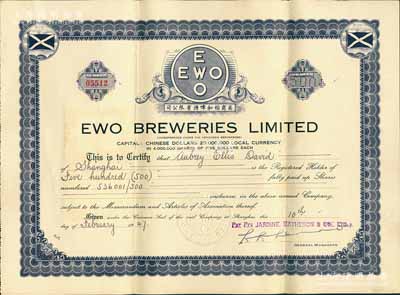 05512
E
EWO
O
EWO BREWERIES LIMITED
(INCORPORATED UNDER THE COMPANIES ORDINANCES)
CAPITAL: CHINESE DOLLARS 20,000,000 LOCAL CURRENCY
IN 4,000,000 SHARES OF FIVE DOLLARS EACH
This is to Certify that Aubrey Ellis David
of Shanghai is the Registered Holder of
Five hundred (500) fully paid up Shares
numbered 536001/500
inclusive, in the above named Company,
subject to the Memorandum and Articles of Association thereof.
Given under the Common Seal of the said Company at Shanghai this 10th
day of February 1947.
PER PRO JARDINE, MATHESON & CO., LTD.
GENERAL MANAGERS